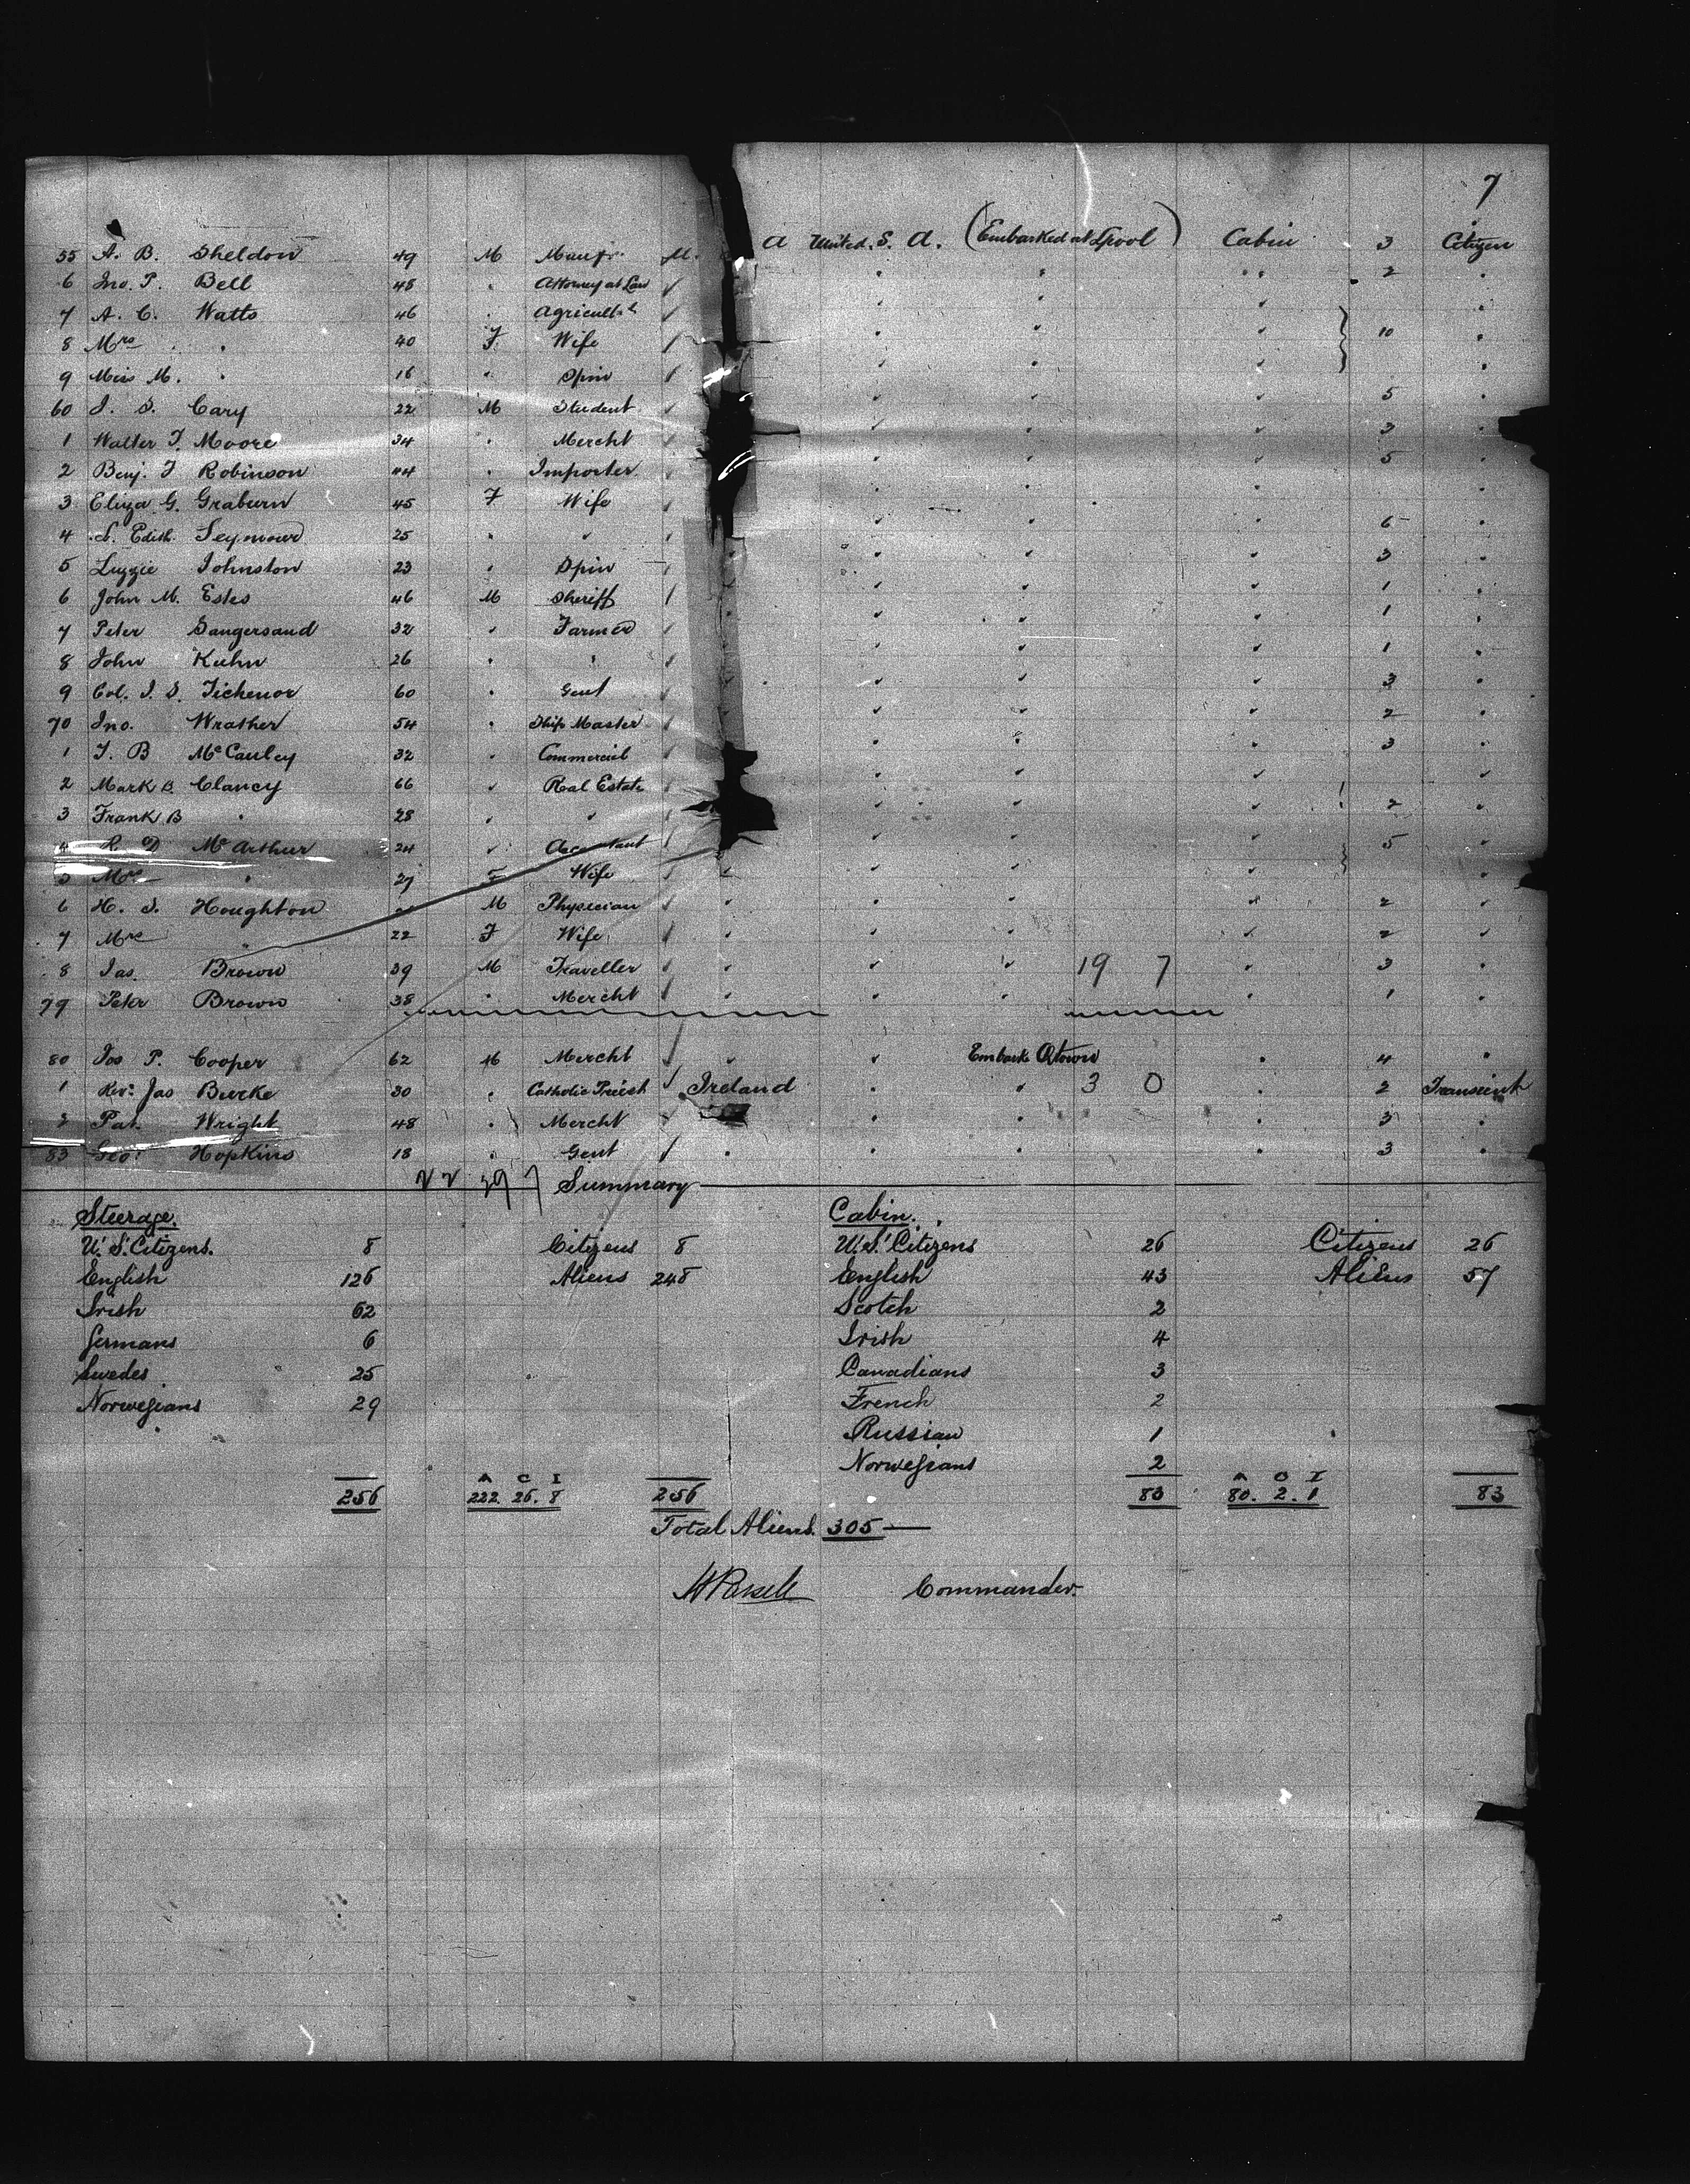 7
55 A. B. Sheldon 49 M Manfr. U. a United. S. A. (Embarked at Lpool) Cabin 3 Citizen
6 Jno. P. Bell 48 " Attorney at Law " " " 2 "
7 A. C. Watts 46 " Agricult " " "
8 Mrs " 40 F Wife " " " 10 "
9 Miss M. " 16 " Spin " " " "
60 J. S. Cary 22 M Student " " " 5 "
1 Walter T. Moore 34 " Mercht " " " 3 "
2 Benj. F Robinson 44 " Importer " " " 5 "
3 Eliza G. Graburn 45 F Wife " " "
4 S. Edith Seymour 25 " " " " " 6 "
5 Lizzie Johnston 23 " Spin " " " 3 "
6 John M. Estes 46 M Sheriff " " " 1 "
7 Peter Sangersand 32 " Farmer " " " 1 "
8 John Kuhn 26 " " " " " 1 "
9 Col. I. S. Tichenor 60 " Gent " " " 3 "
70 Jno. Wrather 54 " Ship Master " " " 2 "
1 T. B McCauley 32 " Commercial " " " 3 "
2 Mark B. Clancy 66 " Real Estate " " " "
3 Frank B " 28 " " " " " 2 "
4 R. D McArthur 24 " Accountant " " " 5 "
5 Mrs " 27 F Wife " " " "
6 H. S. Houghton M Physician " " " " 2 "
7 Mrs " 22 F Wife " " " " 2 "
8 Jas. Brown 39 M Traveller " " " 19 7 " 3 "
79 Peter Brown 38 " Mercht " " " " 1 "
80 Jos P. Cooper 62 M Mercht " " Embark Qtown " 4 "
1 Rev: Jas Burke 30 " Catholic Priest Ireland " " 3 0 " 2 Transient
2 Pat. Wright 48 " Mercht " " " " 3 "
83 Geo: Hopkins 18 " Gent " " " " 3 "
22 39 7 Summary
Steerage. Cabin.
U. S. Citizens. 8 Citizens 8 U. S. Citizens 26 Citizens 26
English 126 Aliens 248 English 43 Aliens 57
Irish 62 Scotch 2
Germans 6 Irish 4
Swedes 25 Canadians 3
Norwegians 29 French 2
Russian 1
Norwegians 2
A C I A C I
256 222. 26. 8 256 83 80. 2. 1 83
Total Aliens. 305
Commander.